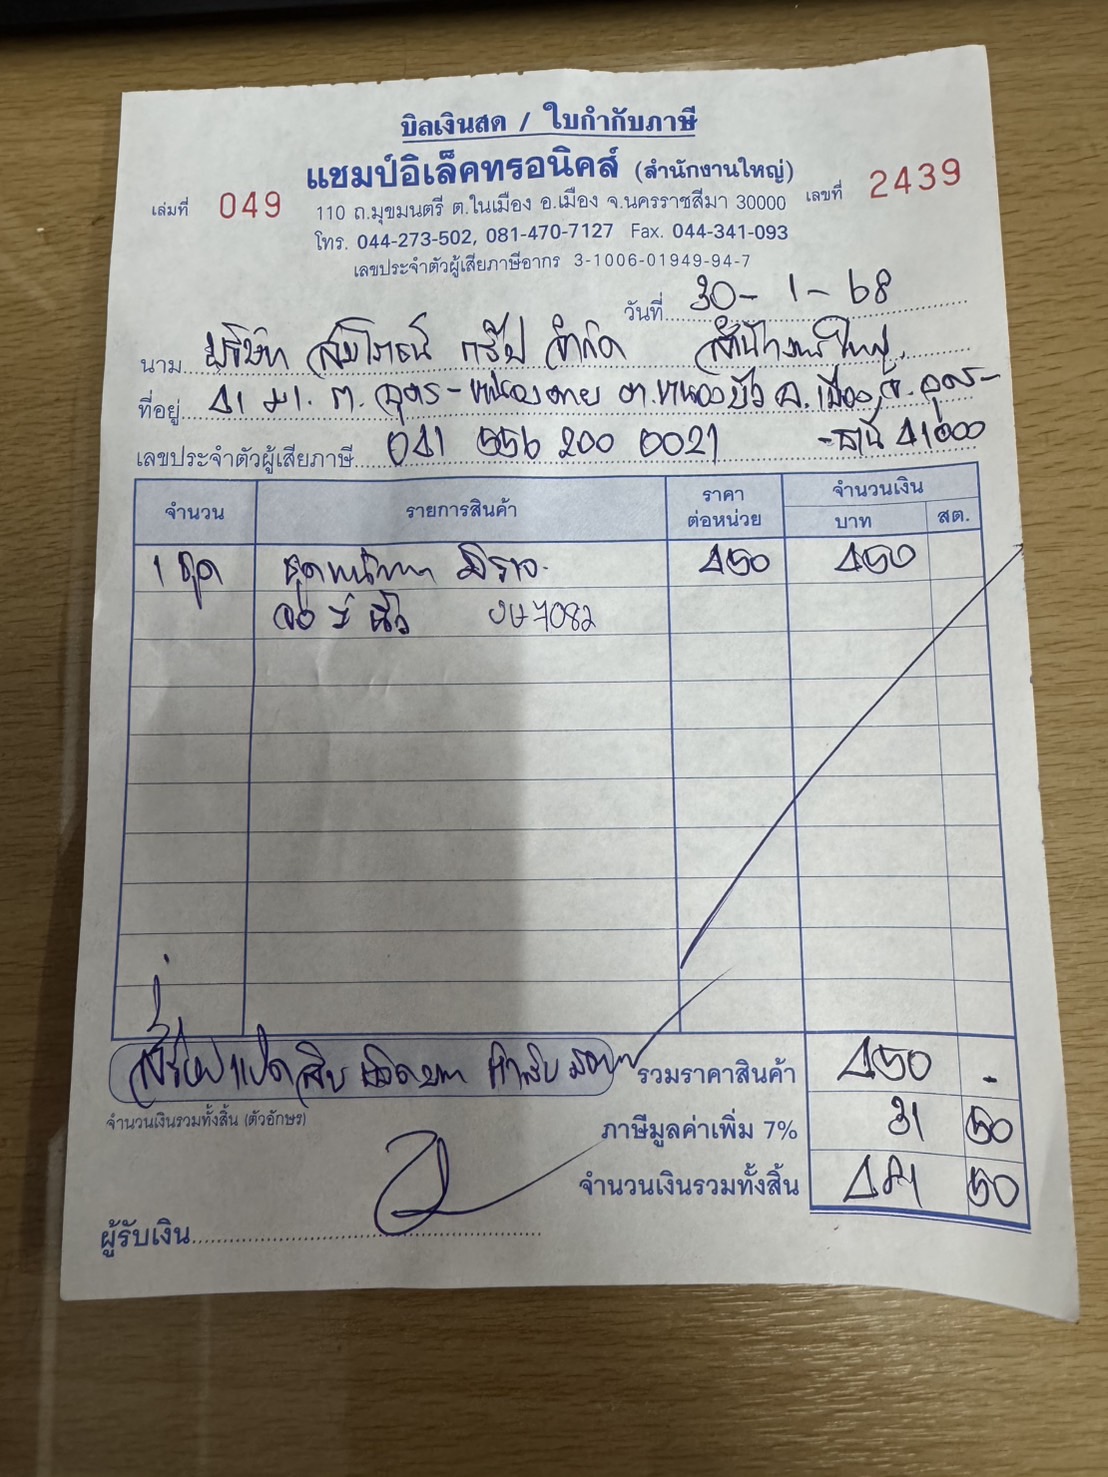 บิลเงินสด / ใบกำกับภาษี
แชมป์อิเล็คทรอนิคส์ (สำนักงานใหญ่)
เล่มที่ 049 เลขที่ 2439
110 ถ.มุขมนตรี ต.ในเมือง อ.เมือง จ.นครราชสีมา 30000
โทร. 044-273-502, 081-470-7127 Fax. 044-341-093
เลขประจำตัวผู้เสียภาษีอากร 3-1006-01949-94-7
วันที่ 30-1-68
นาม บริษัท กรุ๊ป จำกัด สำนักงานใหญ่
ที่อยู่ ม.1 ต.หนองบัว อ.เมือง จ.อุดร-
-ธานี 41000
เลขประจำตัวผู้เสียภาษี 041 556 200 0021
จำนวน รายการสินค้า ราคาต่อหน่วย จำนวนเงิน
บาท สต.
1 ชุด 450 450
7082
รวมราคาสินค้า 450 -
สี่ร้อยแปดสิบเอ็ดบาท ห้าสิบสตางค์
จำนวนเงินรวมทั้งสิ้น (ตัวอักษร)
ภาษีมูลค่าเพิ่ม 7% 31 50
จำนวนเงินรวมทั้งสิ้น 481 50
ผู้รับเงิน